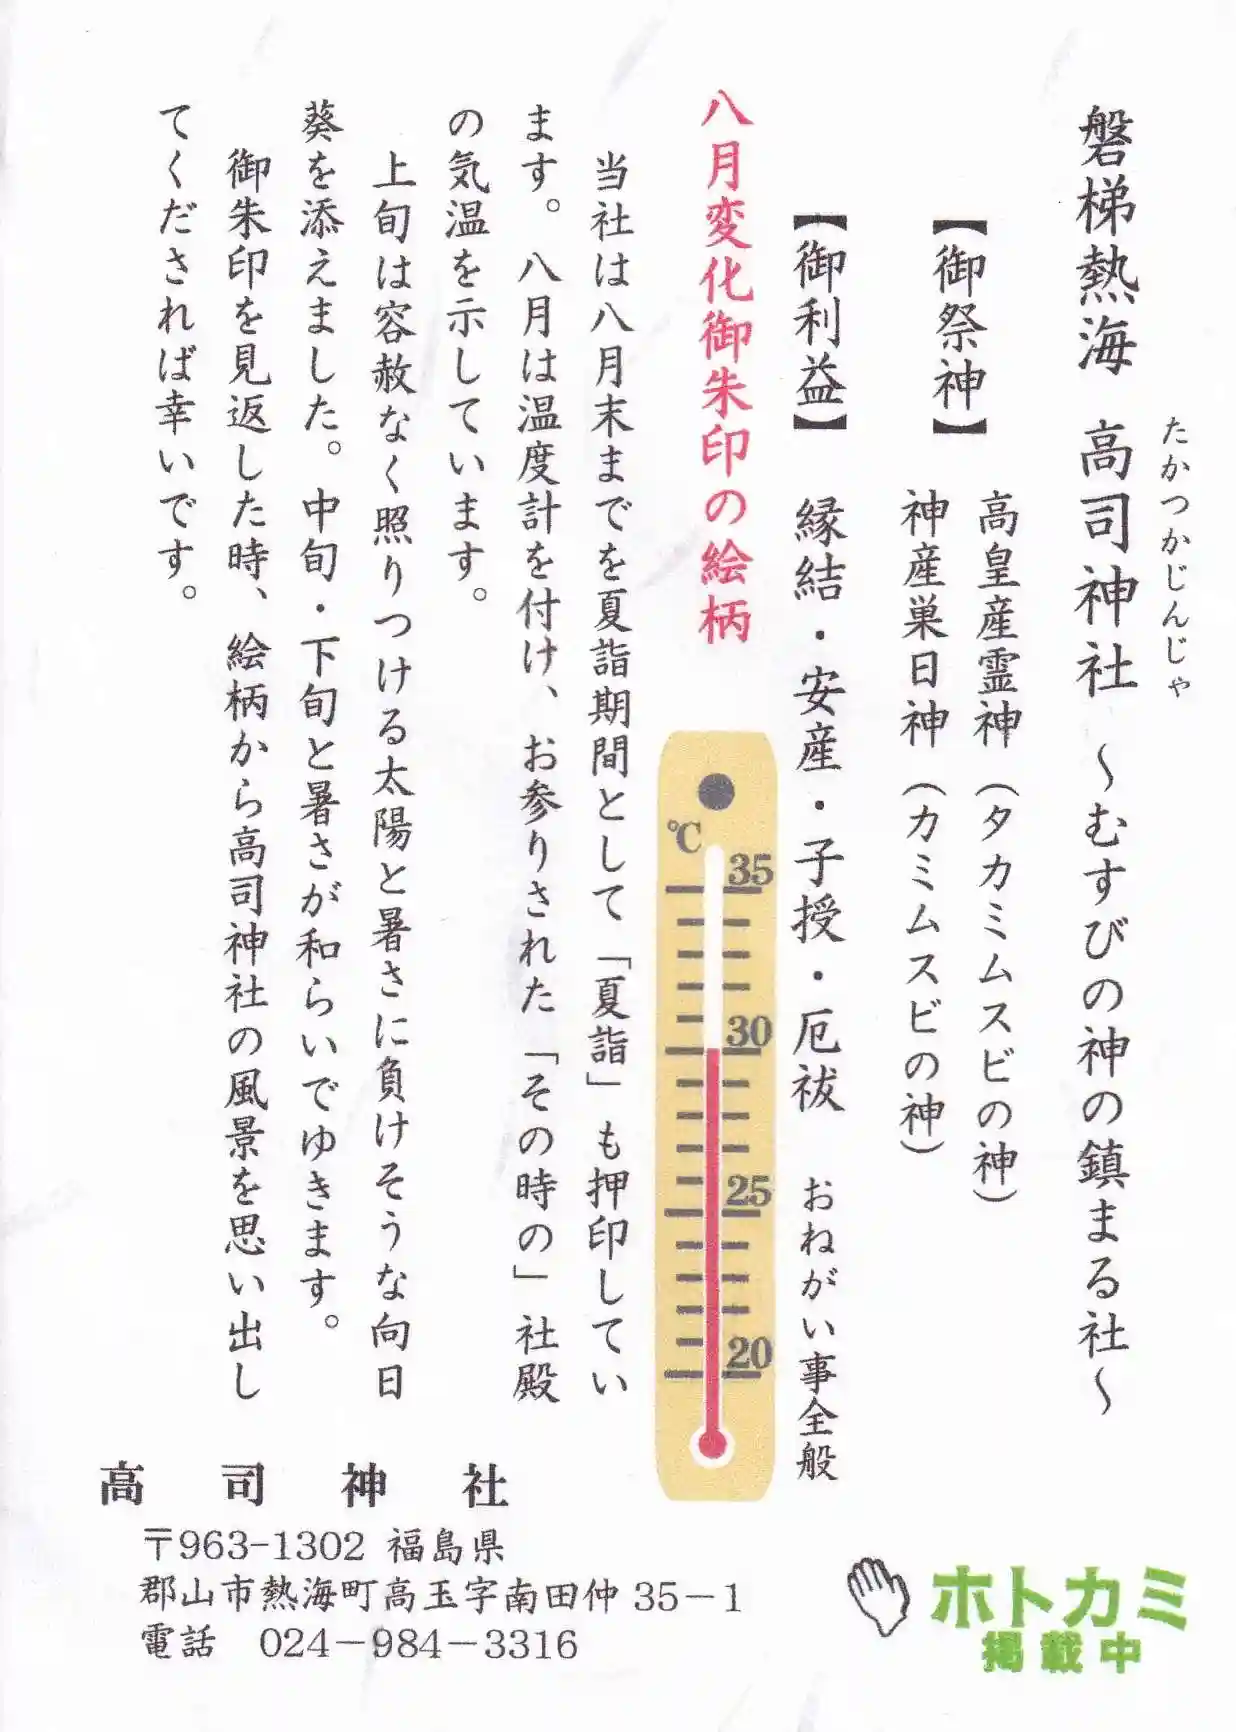 磐梯熱海 高司神社 ～むすびの神の鎮まる社～
たかつかじんじゃ
【御祭神】 高皇産霊神（タカミムスビの神）
神産巣日神（カミムスビの神）
【御利益】 縁結・安産・子授・厄祓 おねがい事全般
八月変化御朱印の絵柄
℃
35
30
25
20
当社は八月末までを夏詣期間として「夏詣」も押印してい
ます。八月は温度計を付け、お参りされた「その時の」社殿
の気温を示しています。
上旬は容赦なく照りつける太陽と暑さに負けそうな向日
葵を添えました。中旬・下旬と暑さが和らいでゆきます。
御朱印を見返した時、絵柄から高司神社の風景を思い出し
てくだされば幸いです。
高司神社
〒963-1302 福島県
郡山市熱海町高玉字南田仲35－1
電話 024－984－3316
ホトカミ
掲載中